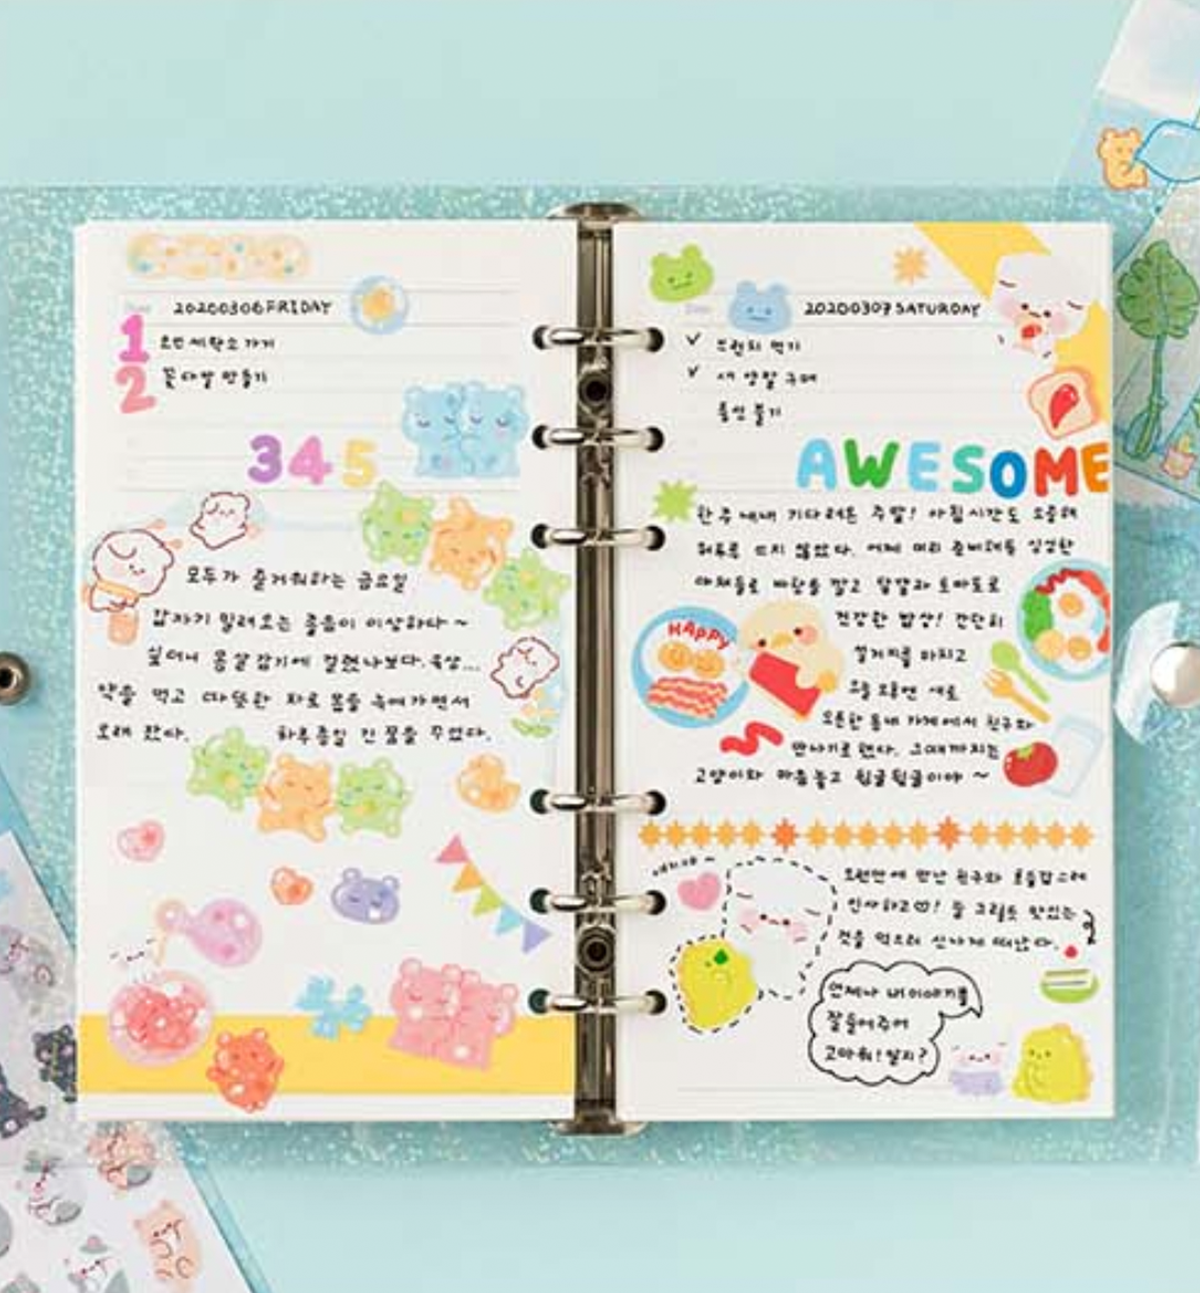 20200306 FRIDAY
1 코인세탁소 가기
2 꽃다발 만들기
3 4 5
모두가 즐거워하는 금요일
갑자기 밀려오는 졸음이 이상하다~
싶더니 몸살감기에 걸렸나보다. 흑상...
약을 먹고 따뜻한 차로 몸을 녹여가면서
오래 잤다. 하루종일 긴 꿈을 꾸었다.
20200307 SATURDAY
✓ 브런치 먹기
✓ 새 양말 구매
통신 불기
AWESOME
한 주 내내 기다려온 주말! 아침시간도 소중해
하루를 뜨지 않았다. 어제 미리 준비해둔 싱싱한
야채들로 바탕을 깔고 달걀과 토마토로
건강한 밥상! 간단히
HAPPY
설거지를 마치고
오늘 오후엔 새로
오픈한 동네 가게에서 친구와
만나기로 했다. 그때까지는
고양이와 마음놓고 뒹굴뒹굴이야~
오랜만에 만난 친구와 호들갑스레
인사하고! 둘 그릴듯 맛있는
것을 먹으러 신나게 떠났다.
언제나 내 이야기를
잘 들어주어
고마워! 알지?